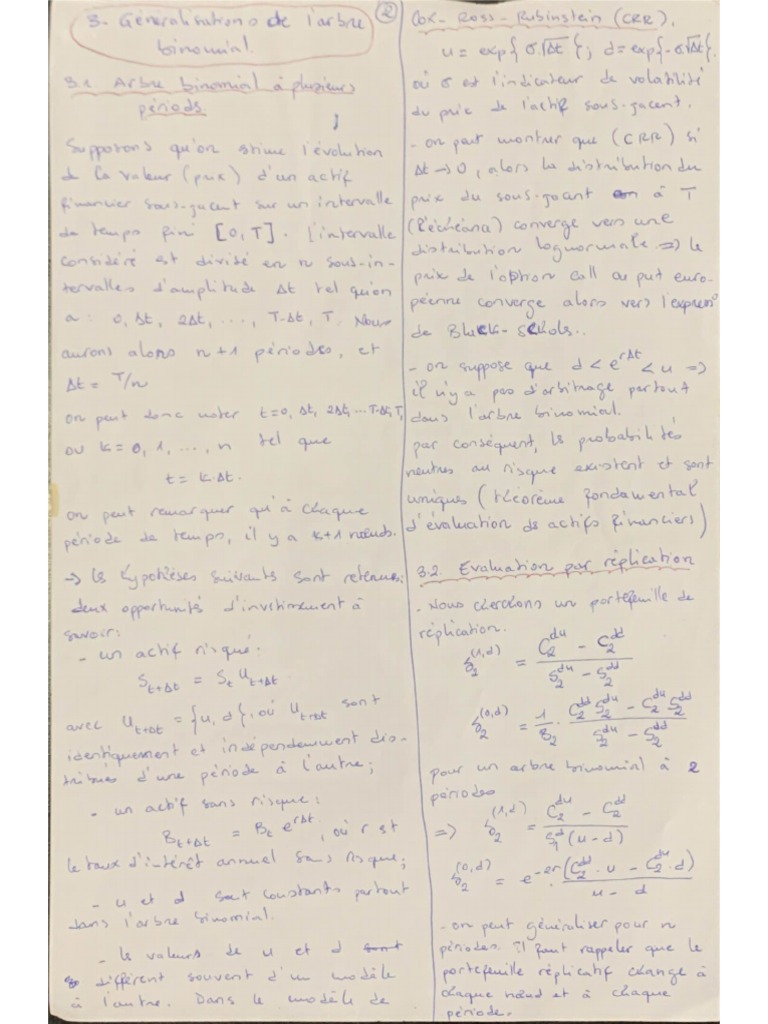 3. Généralisations de l'arbre
binomial.
②
3.1. Arbre binomial à plusieurs
périods.
Supposons qu'on stime l'évolution
de la valeur (prix) d'un actif
financier sous-jacent sur un intervalle
de temps fini [0,T]. l'intervalle
considéré est divisé en n sous-in-
tervalles d'amplitude Δt tel qu'on
a : 0, Δt, 2Δt, ..., T-Δt, T. Nous
aurons alors n+1 périodes, et
Δt = T/n
on peut donc noter t=0, Δt, 2Δt, ... T-Δt, T,
ou k = 0, 1, ..., n tel que
t = k·Δt.
on peut remarquer qu'à chaque
période de temps, il y a k+1 nœuds.
→ les hypothèses suivants sont retenues;
deux opportunités d'investissement à
savoir:
- un actif risqué:
S_{t+Δt} = S_t U_{t+Δt}
avec U_{t+Δt} = {u, d}, où U_{t+Δt} sont
identiquement et indépendemment dis-
tribués d'une période à l'autre;
- un actif sans risque:
B_{t+Δt} = B_t e^{rΔt}, où r est
le taux d'intérêt annuel sans risque;
- u et d sont constants partout
dans l'arbre binomial.
- les valeurs de u et d
diffèrent souvent d'un modèle
à l'autre. Dans le modèle de
Cox - Ross - Rubinstein (CRR),
u = exp{σ√Δt}; d = exp{-σ√Δt}.
où σ est l'indicateur de volatilité
du prix de l'actif sous-jacent.
- on peut montrer que (CRR) si
Δt → 0, alors la distribution du
prix du sous-jacent à T
(l'échéance) converge vers une
distribution lognormale. ⇒ le
prix de l'option call ou put euro-
péenne converge alors vers l'expression
de Black-Schols..
- on suppose que d < e^{rΔt} < u ⇒
il n'y a pas d'arbitrage partout
dans l'arbre binomial.
par conséquent, les probabilités
neutres au risque existent et sont
uniques (théorème fondamental
d'évaluation des actifs financiers)
3.2. Evaluation par réplication
- Nous cherchons un portefeuille de
réplication.
δ_2^{(1,d)} = (C_2^{du} - C_2^{dd}) / (S_2^{du} - S_2^{dd})
δ_2^{(0,d)} = 1/B_2 · (C_2^{dd} S_2^{du} - C_2^{du} S_2^{dd}) / (S_2^{du} - S_2^{dd})
pour un arbre binomial à 2
périodes
⇒ δ_2^{(1,d)} = (C_2^{du} - C_2^{dd}) / (S_1^{d} (u-d))
δ_2^{(0,d)} = e^{-2r} (C_2^{dd} · u - C_2^{du} · d) / (u - d)
- on peut généraliser pour n
périodes. Il faut rappeler que le
portefeuille réplicatif change à
chaque nœud et à chaque
période.